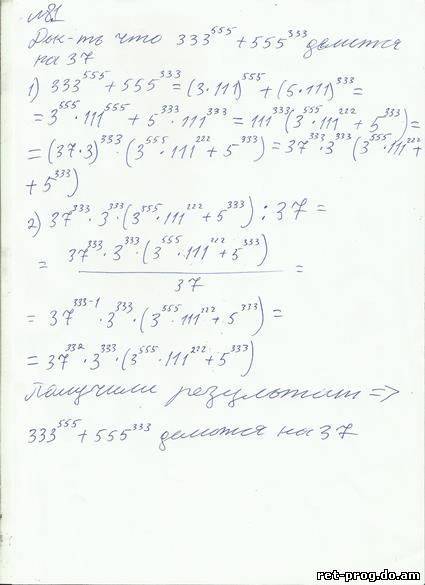 №1
Док-ть что 333⁵⁵⁵ + 555³³³ делится
на 37
1) 333⁵⁵⁵ + 555³³³ = (3·111)⁵⁵⁵ + (5·111)³³³ =
= 3⁵⁵⁵·111⁵⁵⁵ + 5³³³·111³³³ = 111³³³(3⁵⁵⁵·111²²² + 5³³³) =
= (37·3)³³³·(3⁵⁵⁵·111²²² + 5³³³) = 37³³³·3³³³(3⁵⁵⁵·111²²² +
+ 5³³³)
2) 37³³³·3³³³·(3⁵⁵⁵·111²²² + 5³³³) : 37 =
= 37³³³·3³³³·(3⁵⁵⁵·111²²² + 5³³³)
37 =
= 37³³³⁻¹·3³³³·(3⁵⁵⁵·111²²² + 5³³³) =
= 37³³²·3³³³·(3⁵⁵⁵·111²²² + 5³³³)
Получили результат =>
333⁵⁵⁵ + 555³³³ делится на 37
ret-prog.do.am